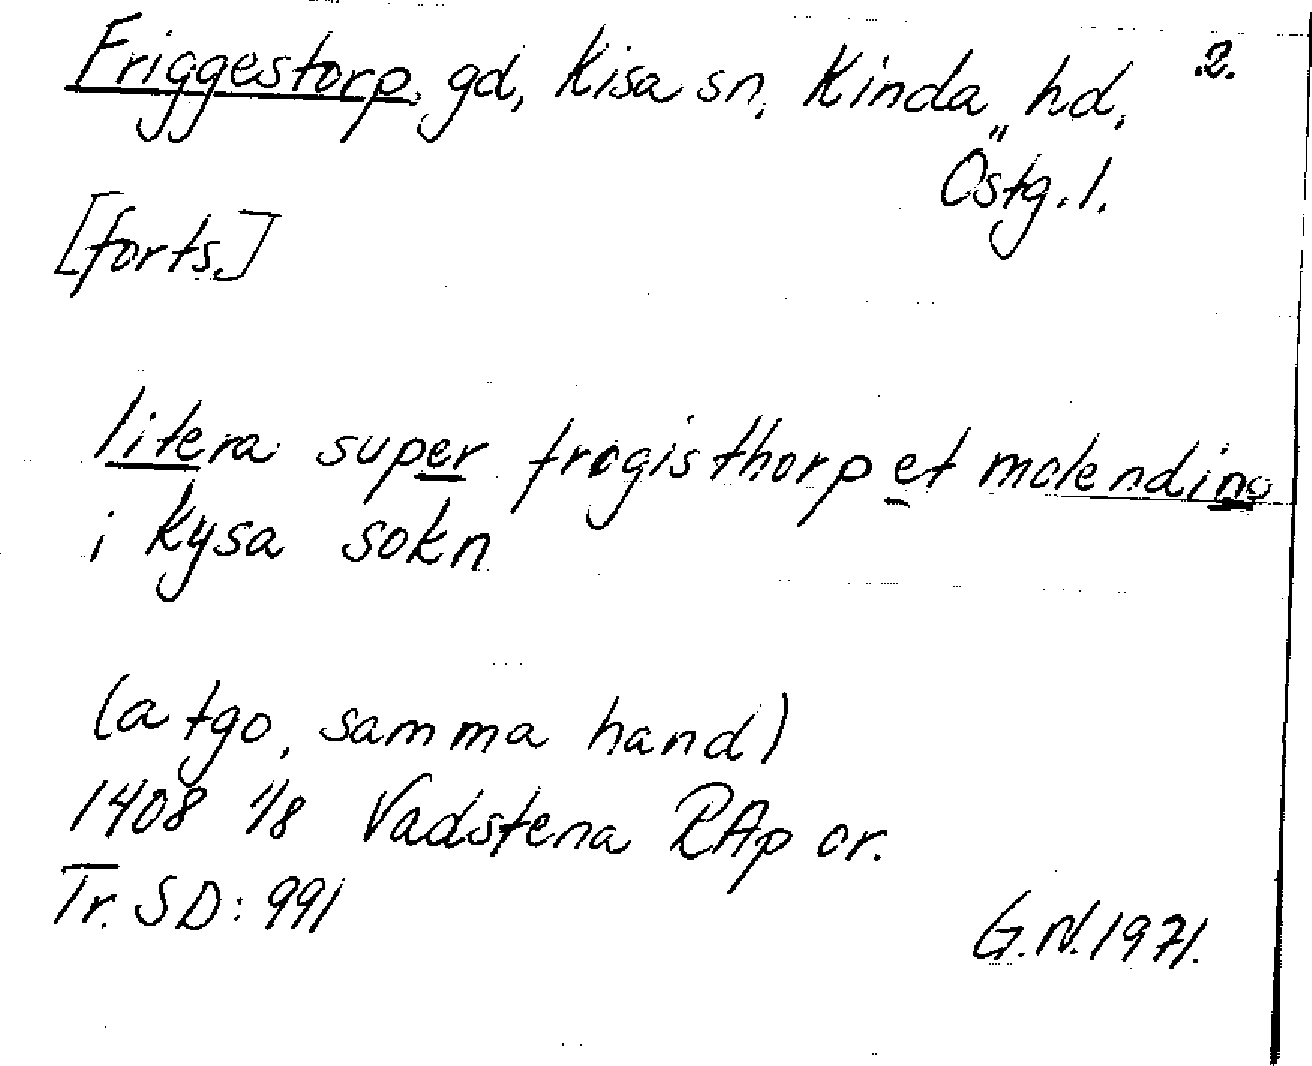 Friggestorp, gd, Kisa sn, Kinda hd, 2.
Östg.l.
[forts.]
litera super frøgisthorp et molendino
i kysa sokn
(a tgo, samma hand)
1408 1/8 Vadstena RAp or.
Tr. SD: 991
G.N. 1971.